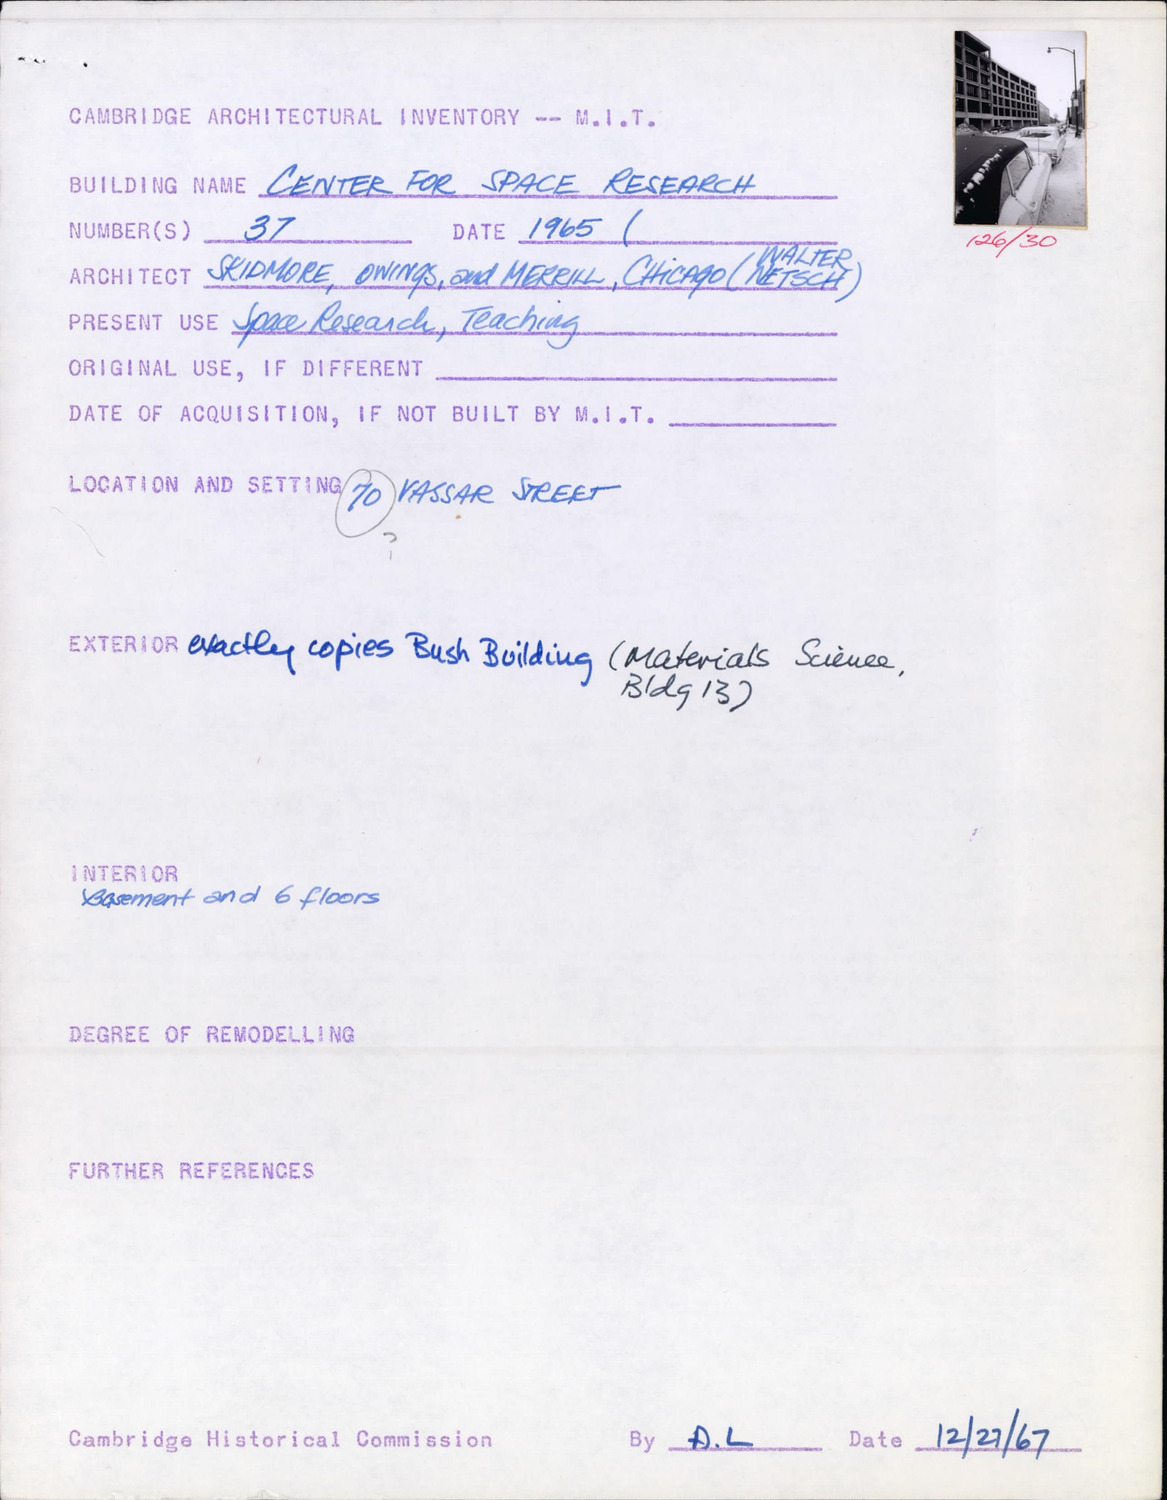 CAMBRIDGE ARCHITECTURAL INVENTORY -- M.I.T.
BUILDING NAME CENTER FOR SPACE RESEARCH
NUMBER(S) 37 DATE 1965 (
126/30
ARCHITECT SKIDMORE, OWINGS, and MERRILL, CHICAGO (WALTER
NETSCH)
PRESENT USE Space Research, Teaching
ORIGINAL USE, IF DIFFERENT
DATE OF ACQUISITION, IF NOT BUILT BY M.I.T.
LOCATION AND SETTING 70 VASSAR STREET
?
EXTERIOR exactly copies Bush Building (Materials Science,
Bldg 13)
INTERIOR
Basement and 6 floors
DEGREE OF REMODELLING
FURTHER REFERENCES
Cambridge Historical Commission By A.L Date 12/27/67